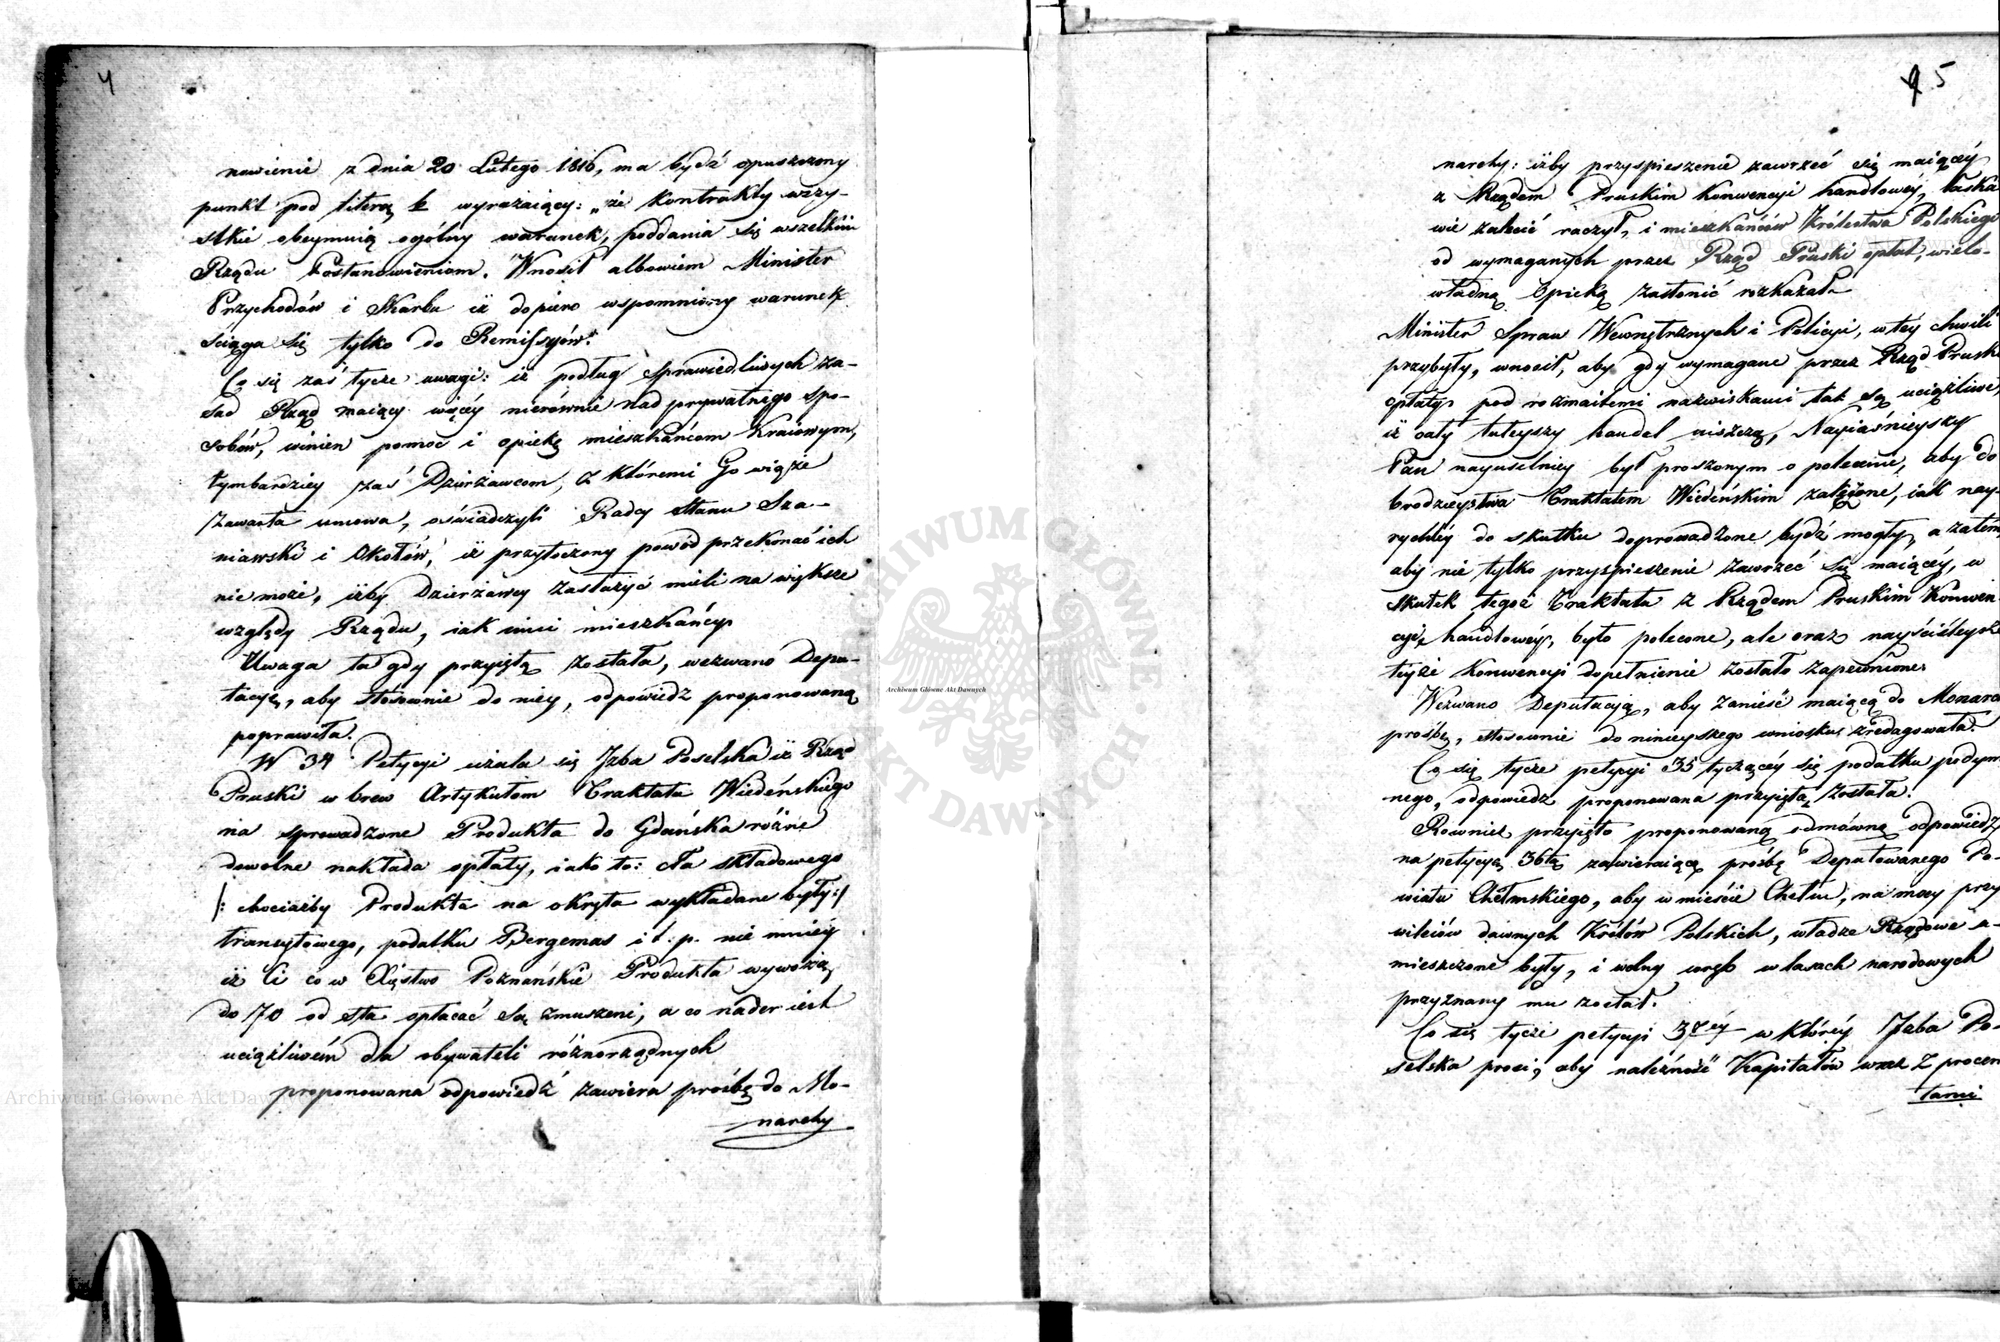 4
nowienie z dnia 20 Lutego 1816, ma bydź opuszczony
punkt pod literą k wyrażaiący: „że kontrakty wszy-
stkie obeymuią ogólny warunek, poddania się wszelkim
Rządu Postanowieniom." Wnosił albowiem Minister
Przychodów i Skarbu iż dopiero wspomniony warunek
ściąga się tylko do Remissyów.
Co się zaś tycze uwagi: iż podług sprawiedliwych za-
sad Rząd maiący więcey nierównie nad prywatnego spo-
sobów, winien pomoc i opiekę mieszkańcom Kraiowym,
tymbardziey zaś Dzierżawcom, z któremi Go wiąże
zawarta umowa, oświadczyli Radcy Stanu Sza-
niawski i Okołów, iż przytoczony powód przekonać ich
nie może, iżby Dzierżawcy zasłużyć mieli na większe
względy Rządu, iak inni mieszkańcy.
Uwaga ta gdy przyiętą została, wezwano Depu-
tacyę, aby stosownie do niey, odpowiedź proponowaną
poprawiła.
W 34 Petycyi użala się Izba Poselska iż Rząd
Pruski w brew Artykułom Traktatu Wiedeńskiego
na sprowadzone Produkta do Gdańska różne
dowolne nakłada opłaty, iako to: cła składowego
/: chociażby Produkta na okręta wykładane były:/
tranzytowego, podatku Bergemas i t. p. nie mniéy
iż Ci co w Xięstwo Poznańskie Produkta wywożą,
do 70 od sta opłacać są zmuszeni, a co nader iest
uciążliwém dla obywateli różnorządnych
proponowana odpowiedź zawiera prośbę do Mo-
narchy
5
narchy: iżby przyspieszenie zawrzeć się maiącéy
z Rządem Pruskim Konwencyi handlowéy, łaska
wie zalecić raczył, i mieszkańców Królestwa Polskiego
od wymaganych przez Rząd Pruski opłat, wielo-
władną Opieką zasłonić rozkazał.
Minister Spraw Wewnętrznych i Policyi, w téy chwili
przybyły, wnosił, aby gdy wymagane przez Rząd Pruski
opłaty pod rozmaitemi nazwiskami tak są uciążliwe,
iż cały tuteyszy handel niszczą, Nayiaśnieyszy
Pan nayusilniey był proszonym o polecenie, aby do
brodzieystwa Traktatem Wiedeńskim założone, iak nay-
rychléy do skutku doprowadzone bydź mogły, a zatem,
aby nie tylko przyspieszenie zawrzeć się maiącéy, w
skutek tegoż Traktatu z Rządem Pruskim Konwen
cyi, handlowéy, było polecone, ale oraz nayściśleysze
teyże Konwencyi dopełnienie zostało zapewnione.
Wezwano Deputacyą, aby zanieść maiącą do Monarc
prośbę, stosownie do ninieyszego wniosku zredagowała.
Co się tycze petycyi 35 tyczącéy się podatku podym
nego, odpowiedź proponowana przyiętą została.
Rownież przyięto proponowaną odmówną odpowiedź
na petycyą 36tą zawieraiącą prośbę Deputowanego Po-
wiatu Chełmskiego, aby w mieście Chełm, na mocy przy
wileiów dawnych Królów Polskich, władze Rządowe u-
mieszczone były, i wolny wręb w lasach narodowych
przyznany mu został.
Co się tycze petycyi 37éy w któréy Izba Po-
selska prosi, aby należność Kapitałów wraz z procen
tami
Archiwum Główne Akt Dawnych
ARCHIWUM GŁÓWNE AKT DAWNYCH
Archiwum Główne Akt Dawnych
Archiwum Główne Akt Dawnych